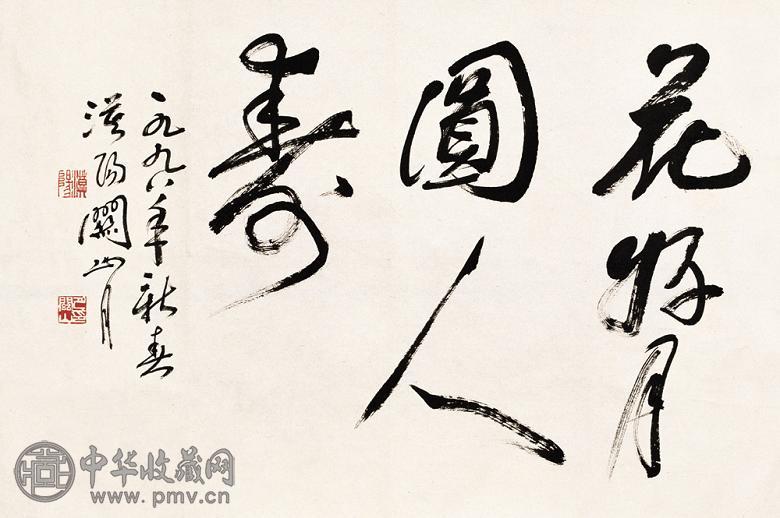 花好月
圓人
壽
一九九八年新春
漠陽關山月
漠陽
中华收藏网
www.pmv.cn